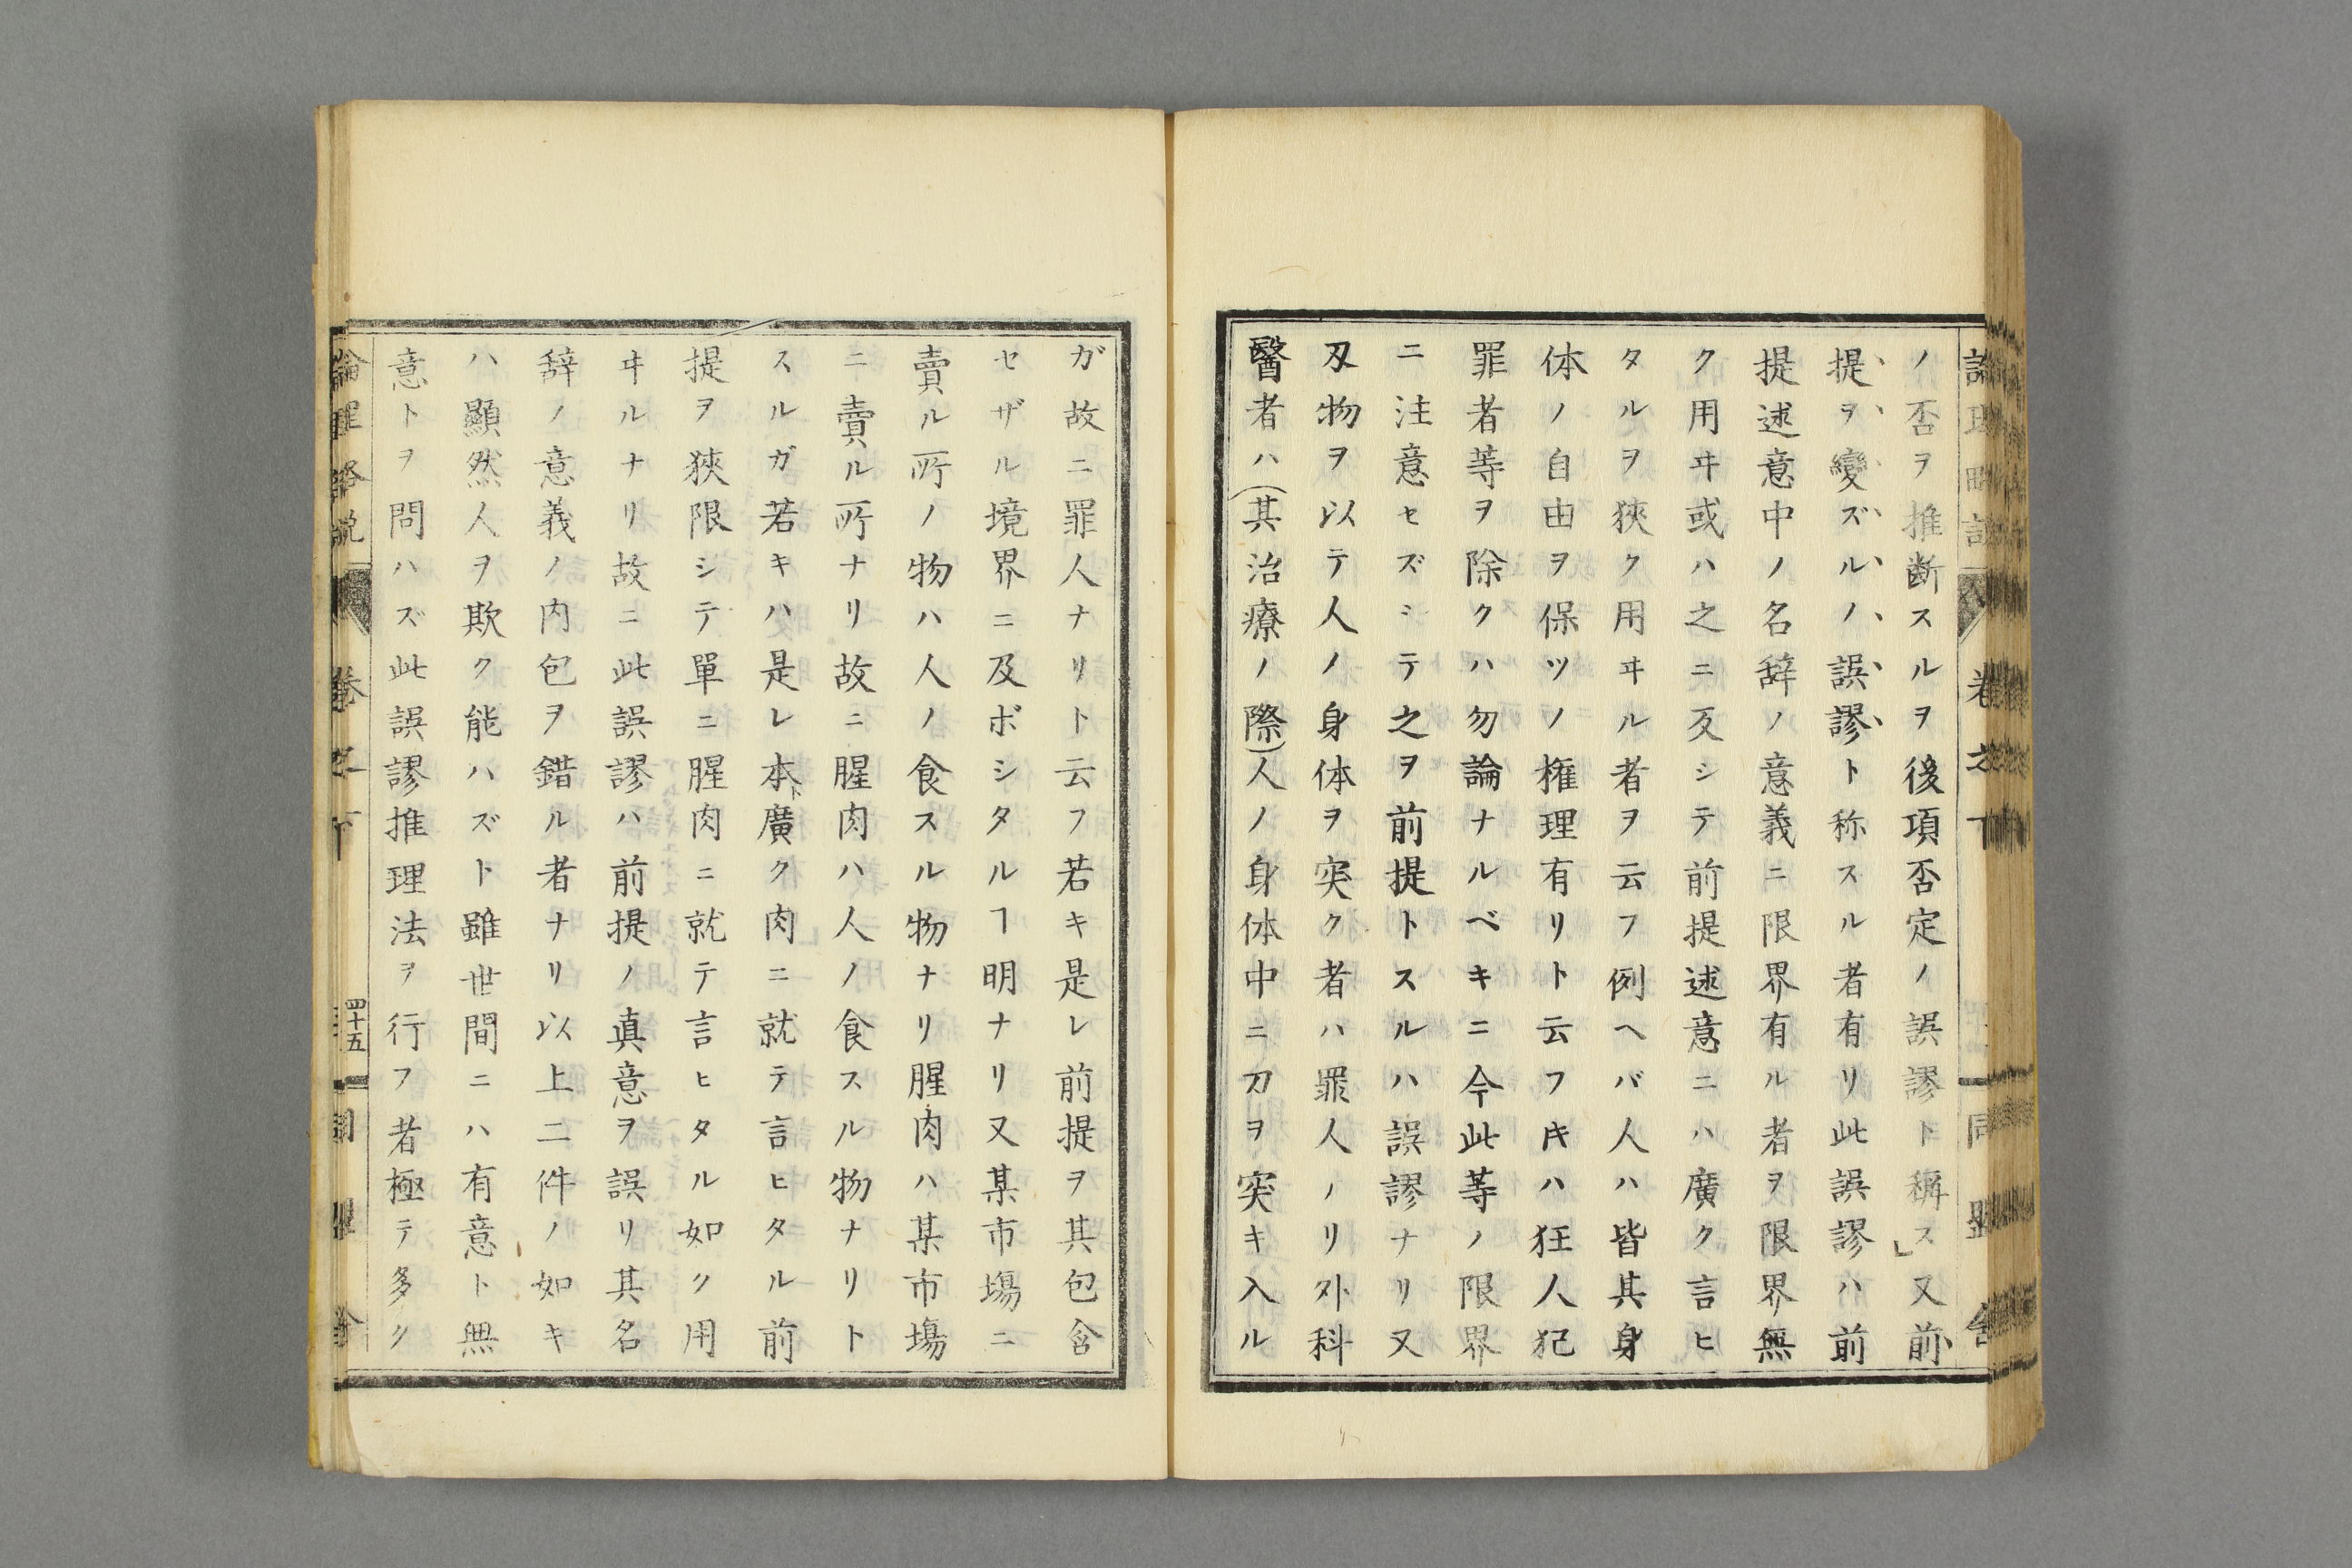 ノ否ヲ推断スルヲ後項否定ノ誤謬ト稱ス」又前
提ヲ變ズルノ誤謬ト称スル者有リ此誤謬ハ前
提述意中ノ名辞ノ意義ニ限界有ル者ヲ限界無
ク用ヰ或ハ之ニ反シテ前提述意ニハ廣ク言ヒ
タルヲ狹ク用ヰル者ヲ云フ例ヘバ人ハ皆其身
体ノ自由ヲ保ツノ権理有リト云フキハ狂人犯
罪者等ヲ除クハ勿論ナルベキニ今此等ノ限界
ニ注意セズシテ之ヲ前提トスルハ誤謬ナリ又
刄物ヲ以テ人ノ身体ヲ突ク者ハ罪人ノリ外科
醫者ハ(其治療ノ際)人ノ身体中ニ刀ヲ突キ入ル
ガ故ニ罪人ナリト云フ若キ是レ前提ヲ其包含
セザル境界ニ及ボシタルヿ明ナリ又某市場ニ
賣ル所ノ物ハ人ノ食スル物ナリ腥肉ハ某市場
ニ賣ル所ナリ故ニ腥肉ハ人ノ食スル物ナリト
スルガ若キハ是レ本ト廣ク肉ニ就テ言ヒタル前
提ヲ狹限シテ單ニ腥肉ニ就テ言ヒタル如ク用
ヰルナリ故ニ此誤謬ハ前提ノ真意ヲ誤リ其名
辞ノ意義ノ内包ヲ錯ル者ナリ以上二件ノ如キ
ハ顯然人ヲ欺ク能ハズト雖世間ニハ有意ト無
意トヲ問ハズ此誤謬推理法ヲ行フ者極テ多ク
論理略説 卷之下 四十五 同盟舎